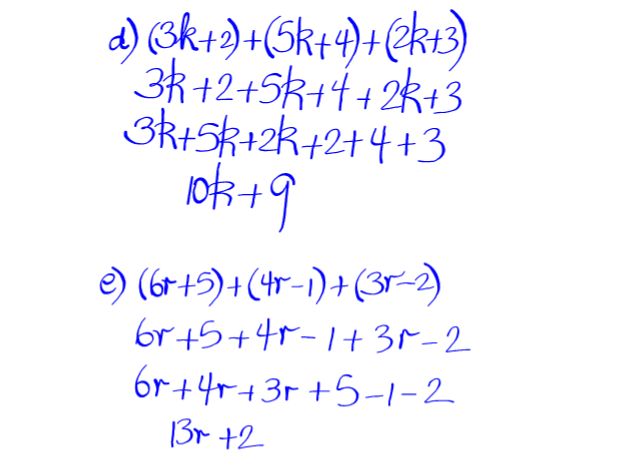 d) (3k+2)+(5k+4)+(2k+3)
3k+2+5k+4+2k+3
3k+5k+2k+2+4+3
10k+9
e) (6r+5)+(4r-1)+(3r-2)
6r+5+4r-1+3r-2
6r+4r+3r+5-1-2
13r+2